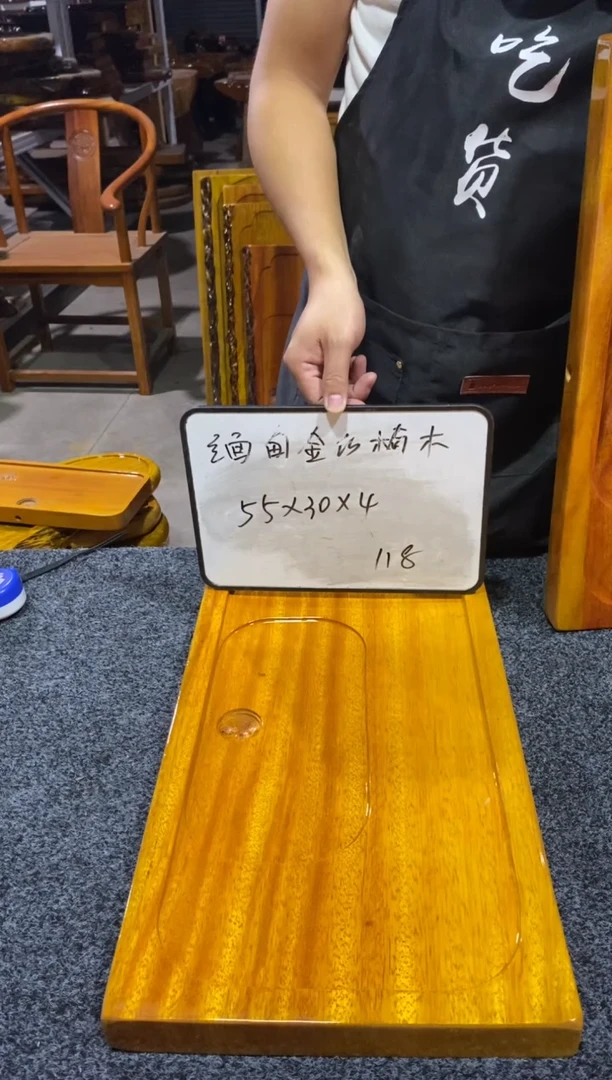 吃
货
缅甸金丝楠木
55×30×4
118